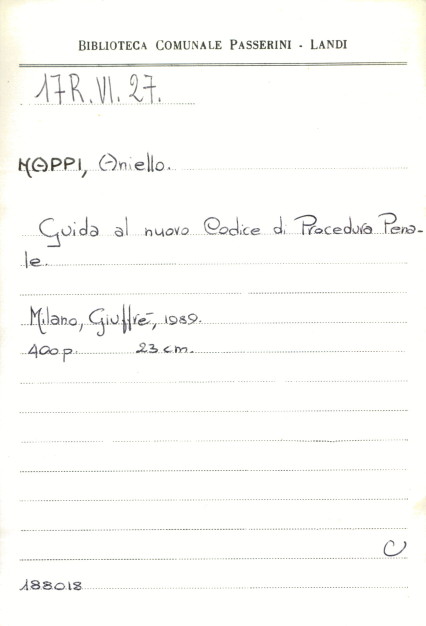 BIBLIOTECA COMUNALE PASSERINI - LANDI
17R.VI.27.
NAPPI, Aniello.
Guida al nuovo Codice di Procedura Pena-
le.
Milano, Giuffrè, 1989.
400 p. 23 cm.
C
188018